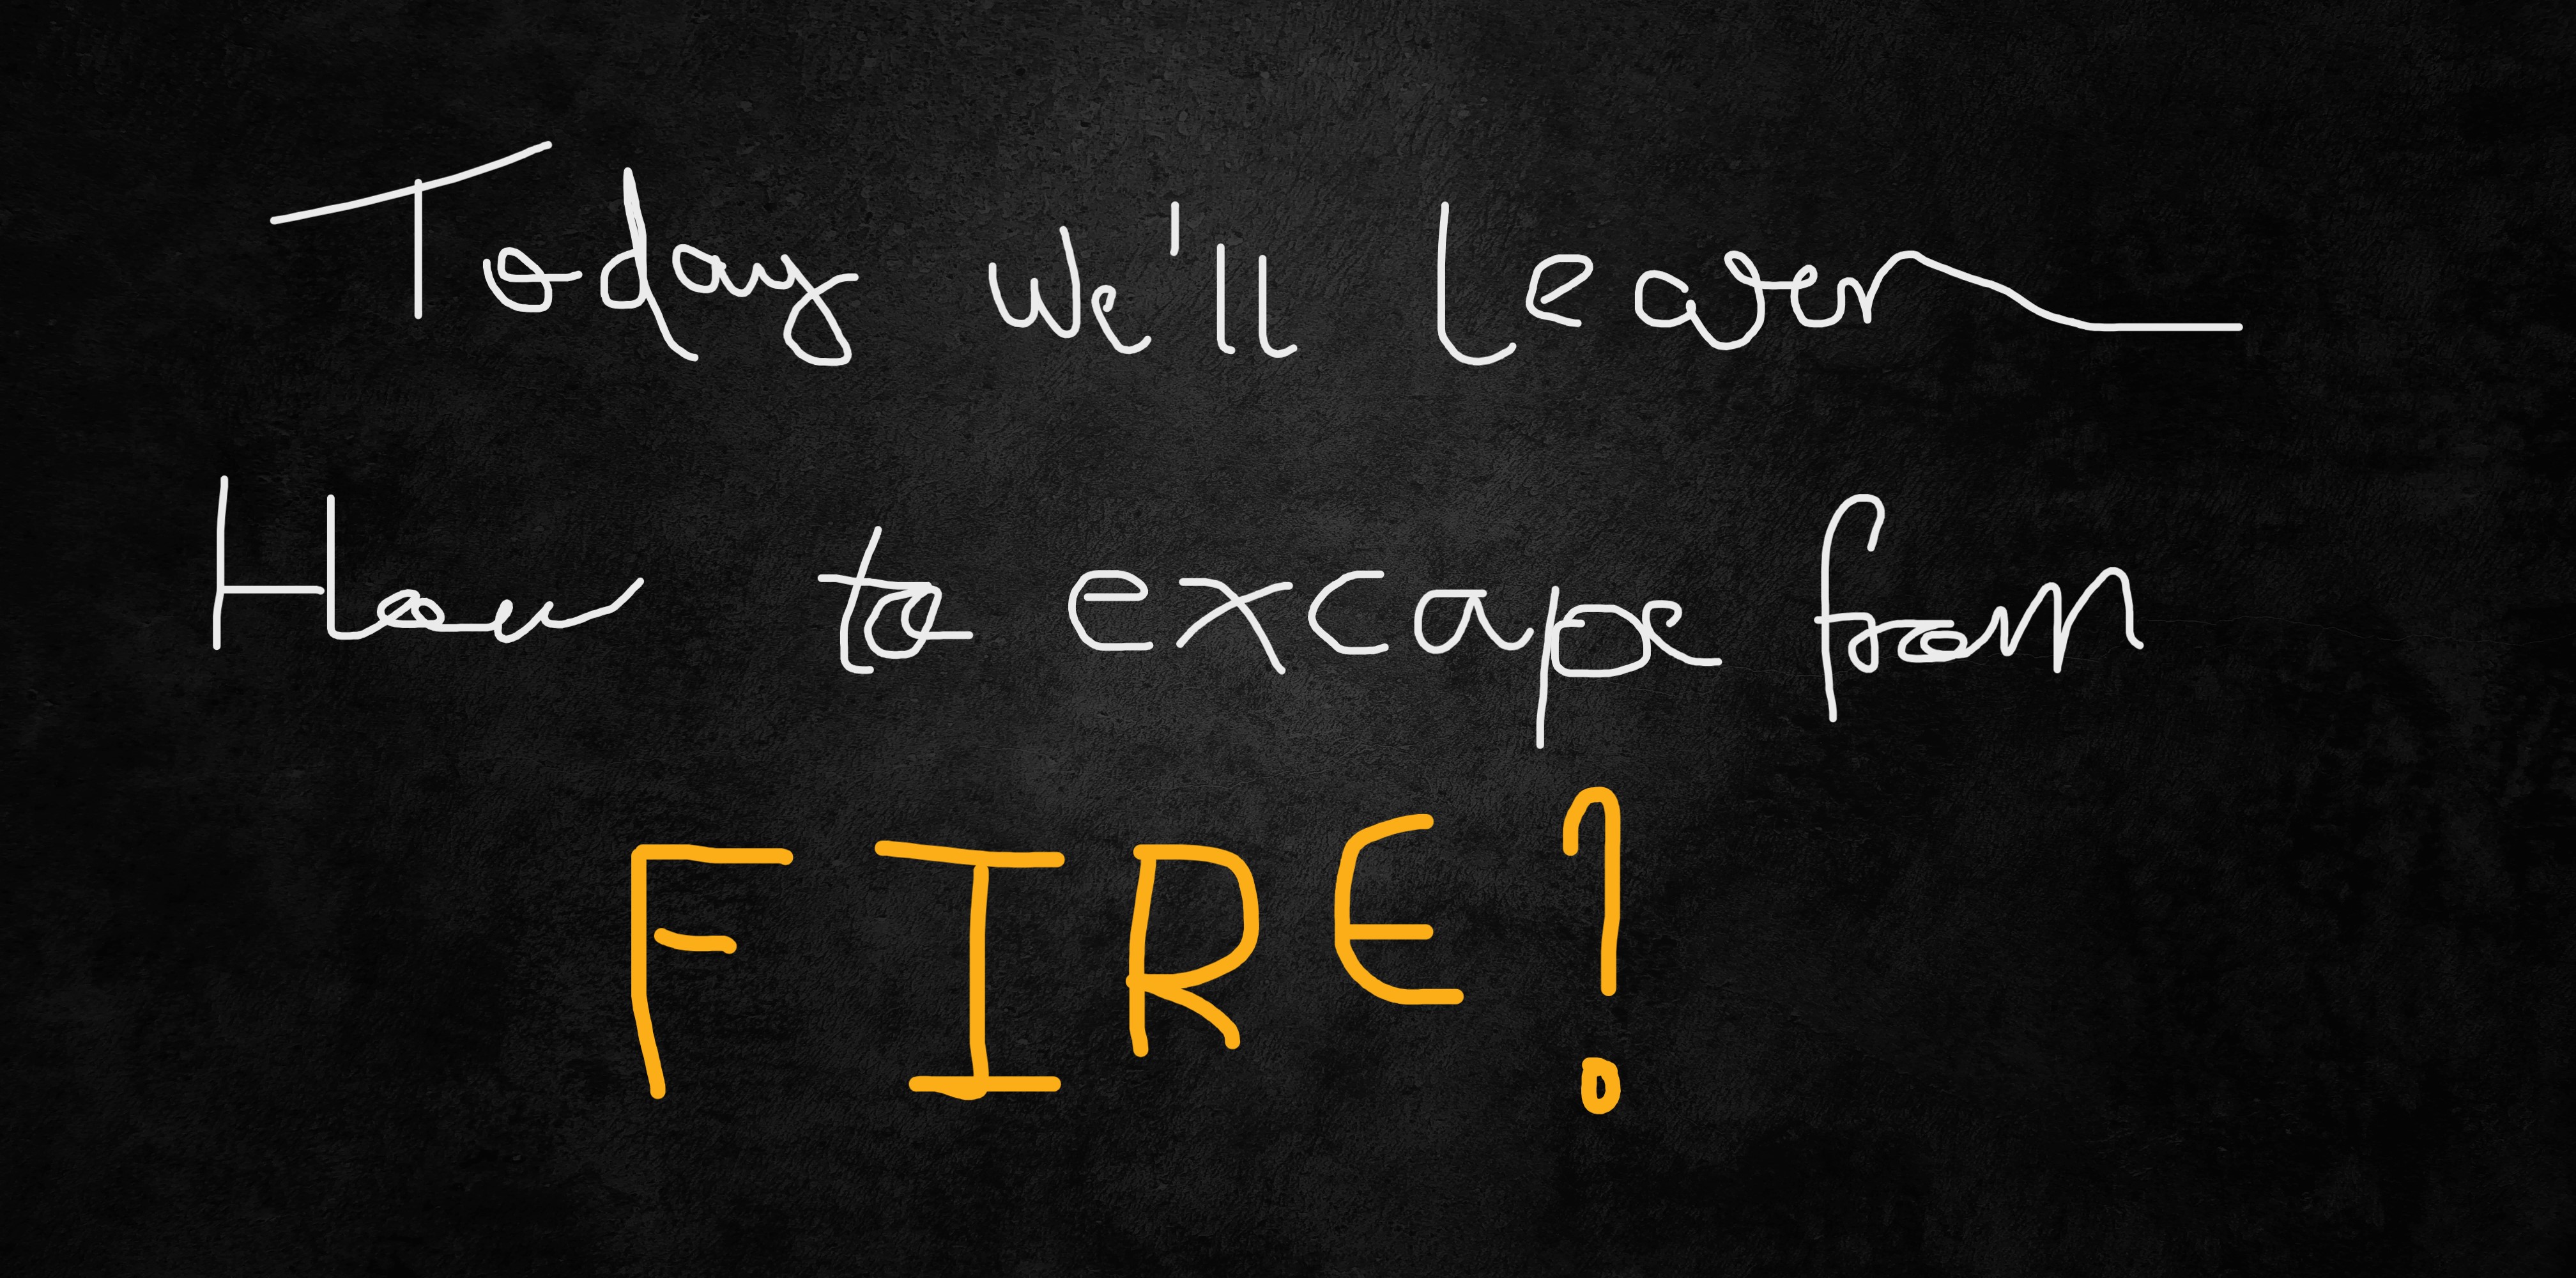 Today we'll learn
How to excape from
FIRE?